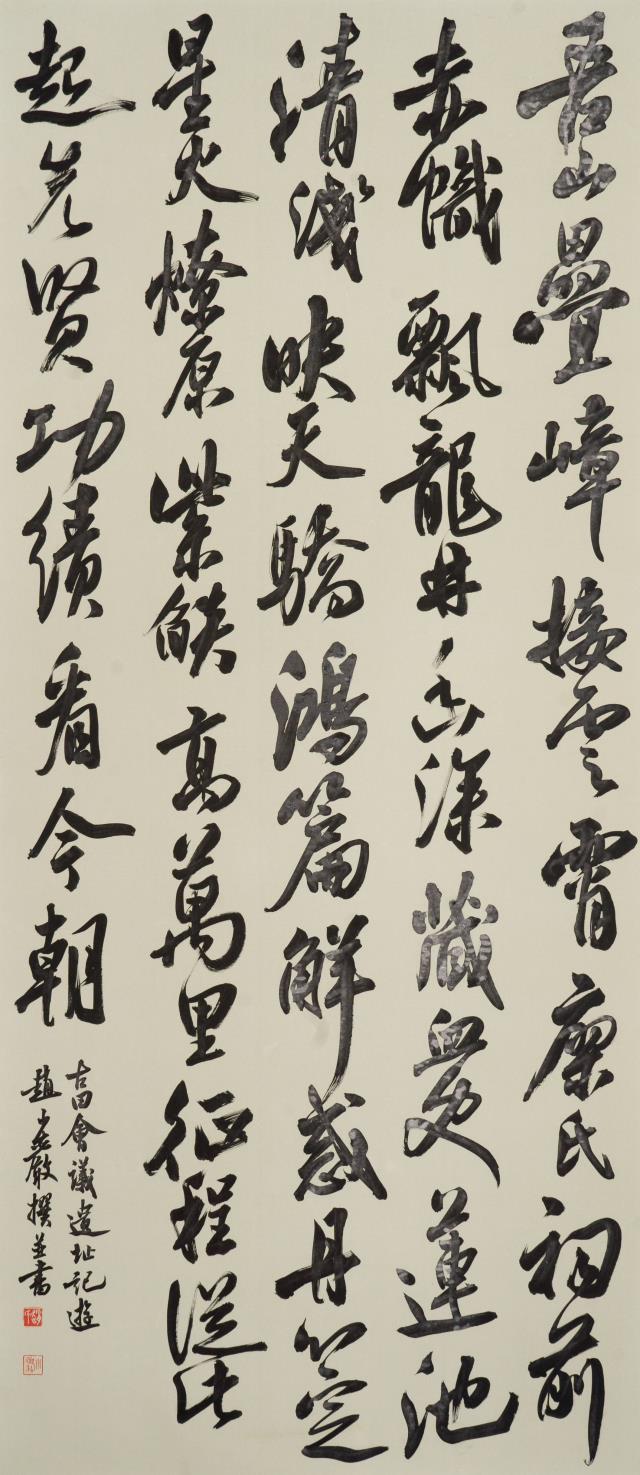 吾山疊嶂接雲霄廖氏祠前
赤幟飄龍井深藏血蓮池
清淺映天驕鴻篇解惑丹心定
星火燎原紫燄高萬里征程從此
起先賢功績看今朝
古田會議遺址記遊
趙嚴撰並書